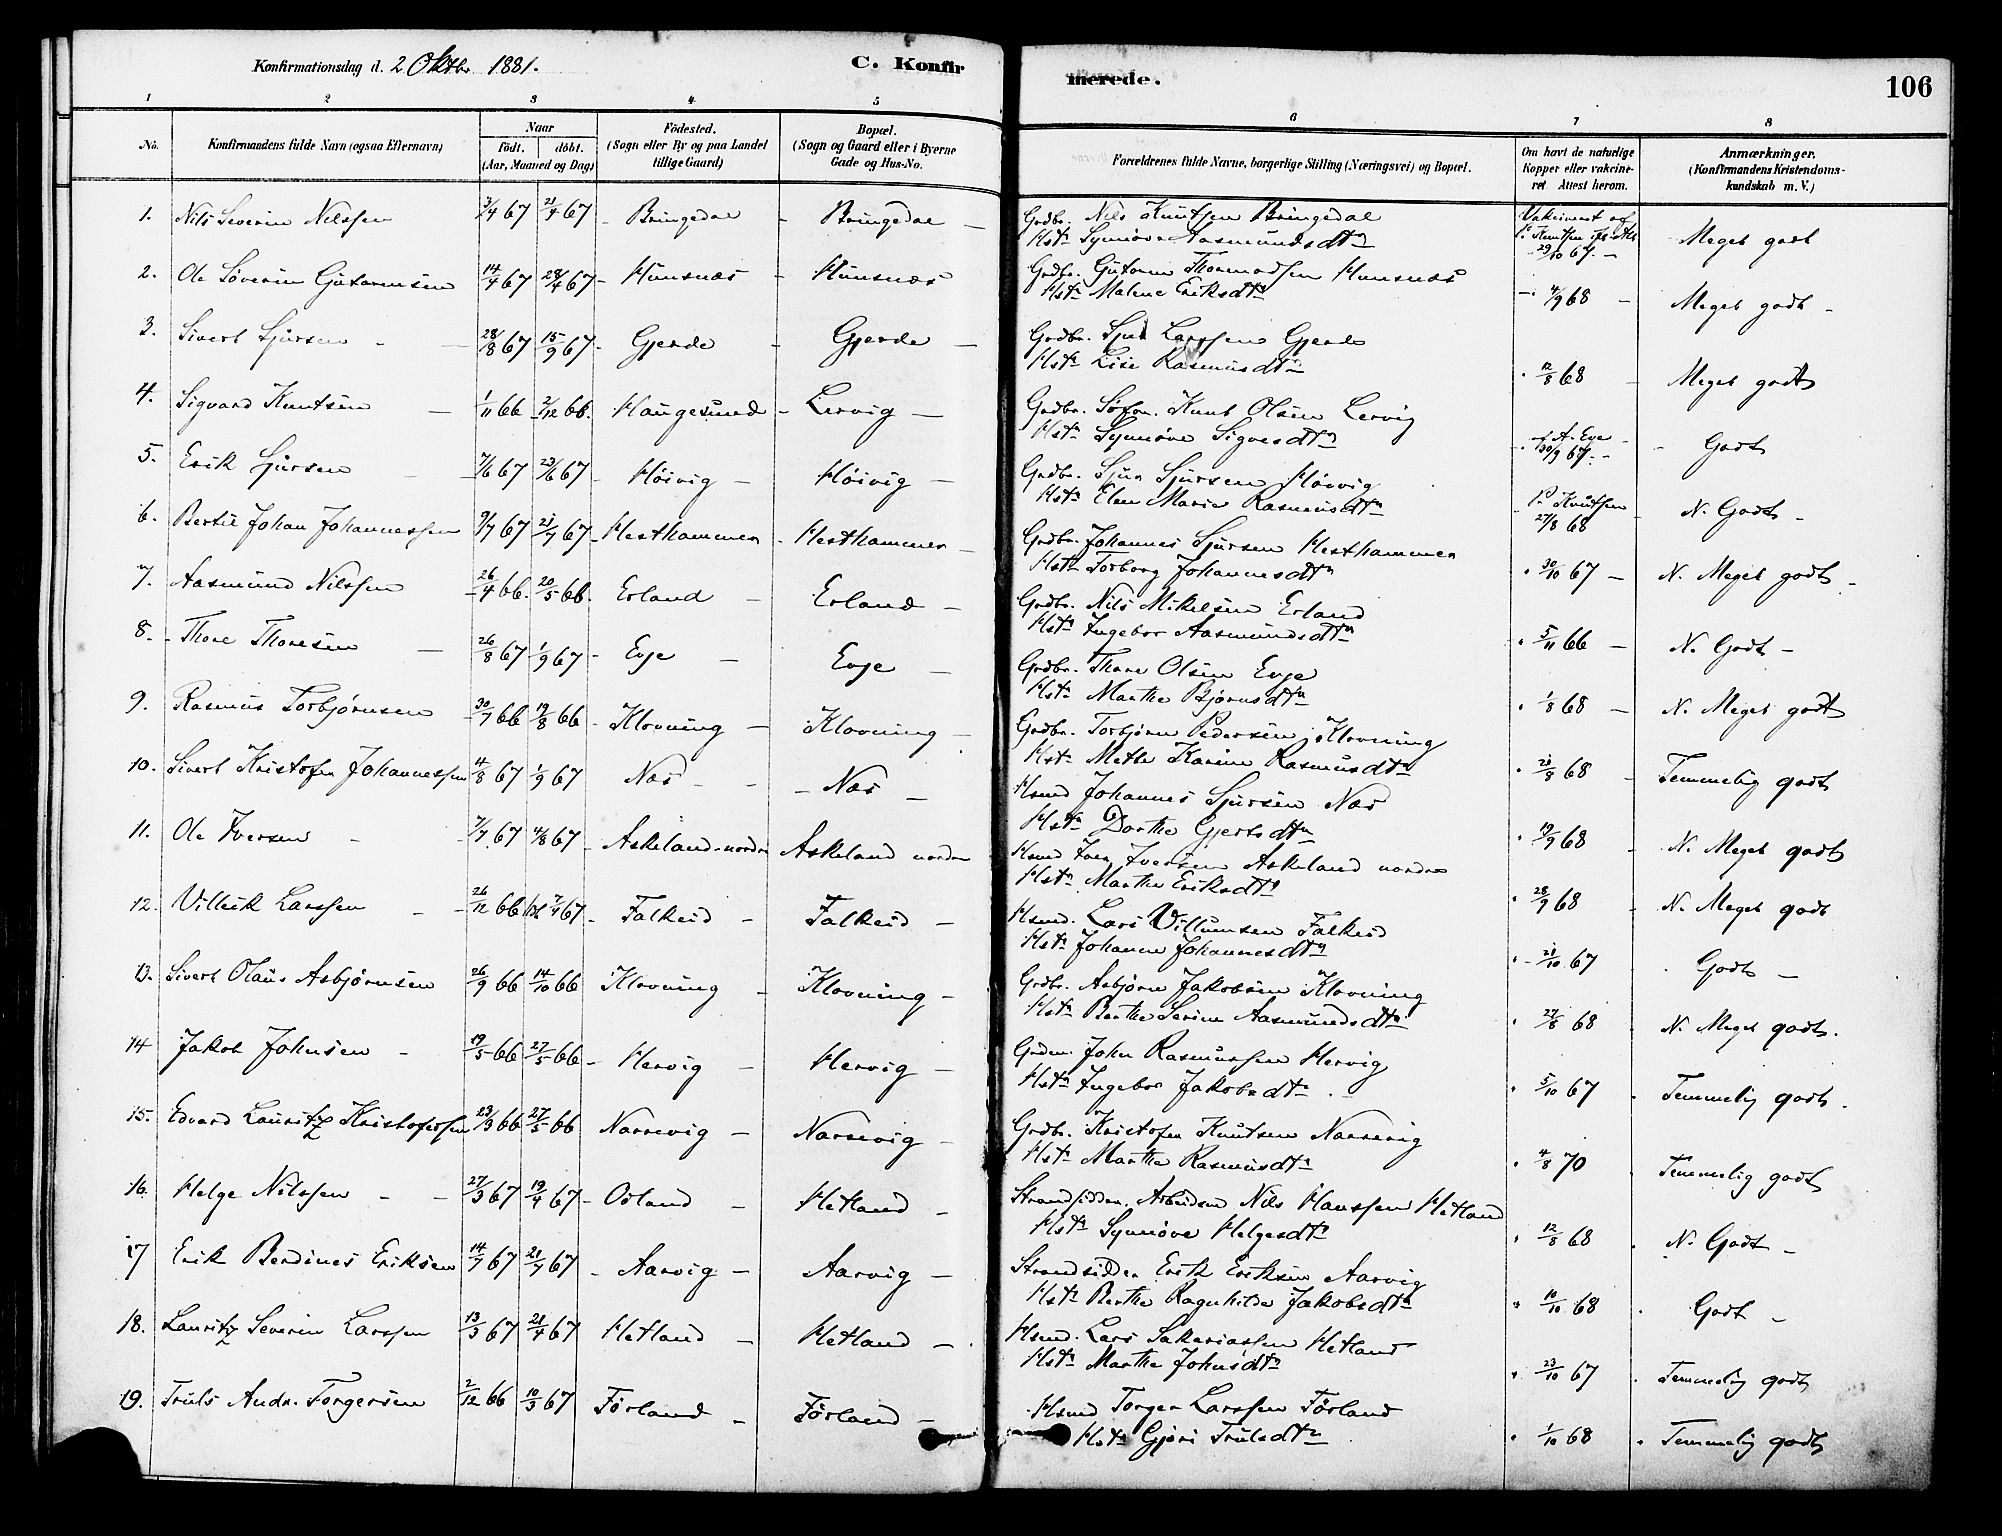 Konfirmationsdag d. 2 Oktbr 1881.
C. Konfirmerede.
106
1 2 3 4 5 6 7 8
No.
Konfirmandens fulde Navn (ogsaa Efternavn)
Naar
født. døbt.
(Aar, Maaned og Dag)
Fødested.
(Sogn eller By og paa Landet
tillige Gaard)
Bopæl.
(Sogn og Gaard eller i Byerne
Gade og Hus-No.
Forældrenes fulde Navne, borgerlige Stilling (Næringsvei) og Bopæl.
Om havt de naturlige
Kopper eller vakcineret
Attest herom.
Anmærkninger.
(Konfirmandens Kristendomskundskab
m. V.)
1. Nils Severin Nilssen 3/4 67 21/4 67 - Bringedal - Bringedal - Grdbr. Nils Knutsen Bringedal Vakcineret af Meget godt
Hst. Synnøve Aasmundsdtr P. Knutsen 29/10 67. -
2. Ole Søverin Gutormsen 14/4 67 28/4 67 - Hunsnæs - Hunsnæs Grdbr. Gutorm Thormodsen Hunsnæs
Hst. Malene Eriksdtr - 4/9 68 - Meget godt -
3. Sivert Sjursen - 28/8 67 15/9 67 - Gjerde - Gjerde - Grdbr. Sjur Larssen Gjerde
Hst. Lise Rasmusdtr 12/8 68 - Meget godt
4. Sigvard Knutsen - 1/11 66 2/12 66. Haugesund - Lervig - Grdbr. Knut Olsen Lervig
Hst. Synnøve Sigvesdtr af A. Evje 30/9 67. - Godt
5. Erik Sjursen - 7/6 67 23/6 67 - Høivig - Høivig - Grdbr. Sjur Sjursen Høivig
Hst. Elen Marie Rasmusdtr P. Knutsen 27/8 68 N. Godt -
6. Bertil Johan Johannessen 9/7 67 21/7 67 - Hesthammer - Hesthammer - Grdbr. Johannes Sjursen Hesthammer
Hst. Torborg Johannesdtr 30/10 67 - N. Meget godt -
7. Aasmund Nilssen 26/4 66. 20/5 66. Erland - Erland - Grdbr. Nils Mikelsen Erland
Hst. Ingebor Aasmundsdtr 5/11 66 - N. Godt -
8. Thore Thoresen - 26/8 67 1/9 67 - Evje - Evje - Grdbr. Thore Olsen Evje
Hst. Marthe Bjørnsdtr 1/8 68 - N. Meget godt
9. Rasmus Torbjørnsen 30/7 66 19/8 66 - Klovning - Klovning - Grdbr. Torbjørn Pedersen Klovning
Hst. Methe Karine Rasmusdtr 21/8 68 - Temmelig godt
10. Sivert Kristofer Johannessen 4/8 67 1/9 67 Næs - - Næs - Hsmd Johannes Sjursen Næs
Hst. Dorthe Gjertsdtr 19/9 68 - N. Meget godt
11. Ole Iversen - 7/7 67 4/8 67 - Askeland nordre Askeland nordre Hsmd Iver Iversen Askeland nordre
Hst. Marthe Eriksdtr 28/9 68 - N. Meget godt
12. Villeik Larssen - 26/12 66 7/4 67 - Falkeid - Falkeid - Hsmd. Lars Villumsen Falkeid
Hst. Johanne Johannesdtr - 21/10 67 Godt -
13. Sivert Olaus Asbjørnsen 26/9 66 14/10 66 Klovning - Klovning - Grdbr. Asbjørn Jakobsen Klovning
Hst. Berthe Serine Aasmundsdtr 27/8 68 N. Meget godt.
14 Jakob Johnsen - 19/5 66 27/5 66 - Hervig - Hervig - John Rasmussen Hervig
Hst. Ingebor Jakobsdtr . - 5/10 67 Temmelig godt.
15. Edvard Lauritz Kristofersen 23/3 66 27/5 66 Narrevig - Narrevig - Grdbr. Kristofer Knutsen Narrevig
Hst. Marthe Rasmusdtr 4/8 70 Temmelig godt
16. Helge Nilssen - - 27/3 67 19/4 67 - Odland - Hetland - Strandsidder, Arbeider Nils Hanssen Hetland
Hst. Synnøve Helgesdtr 12/8 68 N. Godt -
17 Erik Berdines Eriksen 14/7 67 21/7 67 - Aarvig - Aarvig - Strandsidder Erik Eriksen Aarvig
Hst. Berthe Ragnhilde Jakobsdtr 10/10 68 Godt -
18. Lauritz Severin Larssen 13/3 67 21/4 67 Hetland - Hetland - Hsmd. Lars Sakariassen Hetland
Hst. Marthe Johnsdtr 23/10 67 Temmelig godt
19. Truls Andr. Torgersen 2/12 66 10/3 67 Førland - Førland - Hsmd Torger Larssen Førland
Hst. Gjøri Trulsdtr 1/10 68 Temmelig godt